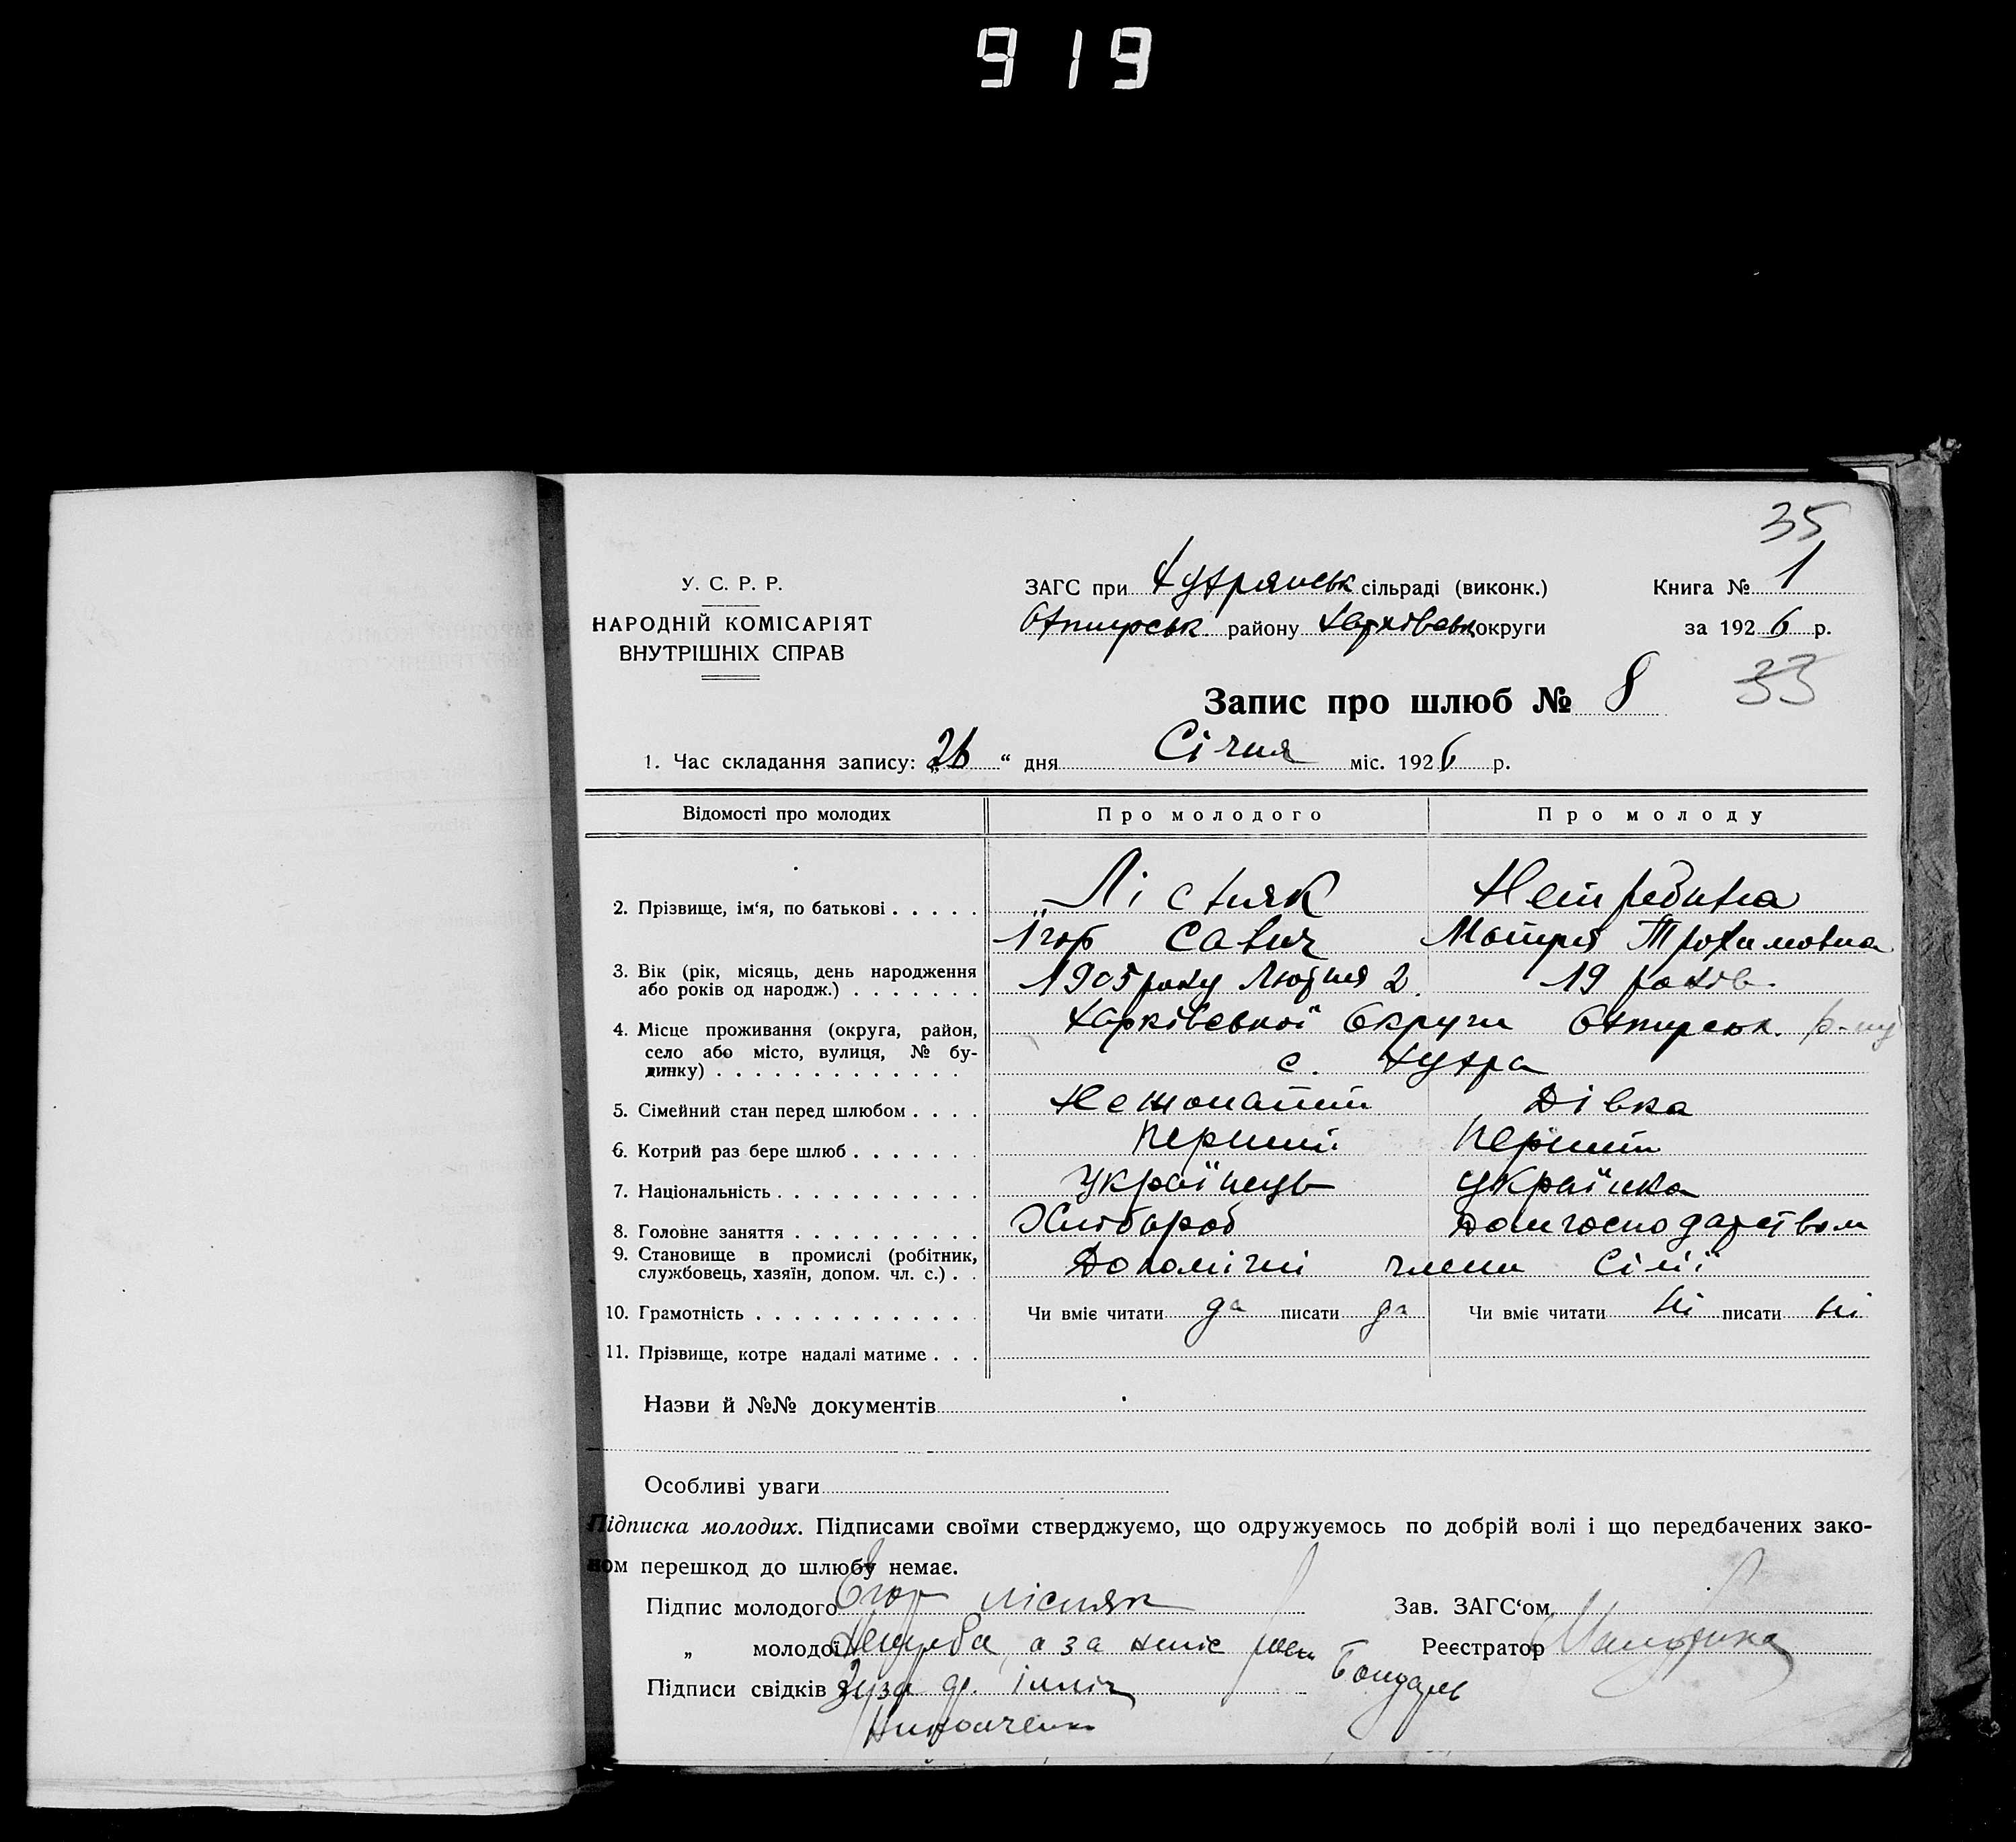 919
35
У. С. Р. Р.
НАРОДНІЙ КОМІСАРІЯТ
ВНУТРІШНІХ СПРАВ
ЗАГС при сільраді (виконк.)
району Харківськ округи
Книга № 1
за 1926 р.
33
Запис про шлюб № 8
1. Час складання запису: „26“ дня Січня міс. 1926 р.
Відомості про молодих Про молодого Про молоду
2. Прізвище, ім‘я, по батькові . . . . . Лісняк
Їгор Савич Мотря Трохимовна
3. Вік (рік, місяць, день народження
або років од народж.) . . . . . . . 1905 року Лютня 2. 19 років.
4. Місце проживання (округа, район, Харківської Округи р-ну
село або місто, вулиця, № бу-
динку) . . . . . . . . . . . . . с.
5. Сімейний стан перед шлюбом . . . . Нежонатий Дівка
6. Котрий раз бере шлюб . . . . . . . перший перший
7. Національність . . . . . . . . . . . Українець Українка
8. Головне заняття . . . . . . . . . . Хлібороб Домгосподарством
9. Становище в промислі (робітник,
службовець, хазяїн, допом. чл. с.) . . Допомічні члени Сімї
10. Грамотність . . . . . . . . . . . . Чи вміє читати да писати да Чи вміє читати ні писати ні
11. Прізвище, котре надалі матиме . . .
Назви й №№ документів
Особливі уваги
Підписка молодих. Підписами своїми стверджуємо, що одружуємось по добрій волі і що передбачених зако-
ном перешкод до шлюбу немає.
Підпис молодого Єгор лісняк Зав. ЗАГС‘ом
„ молодої а за Реєстратор
Підписи свідків Бондарь